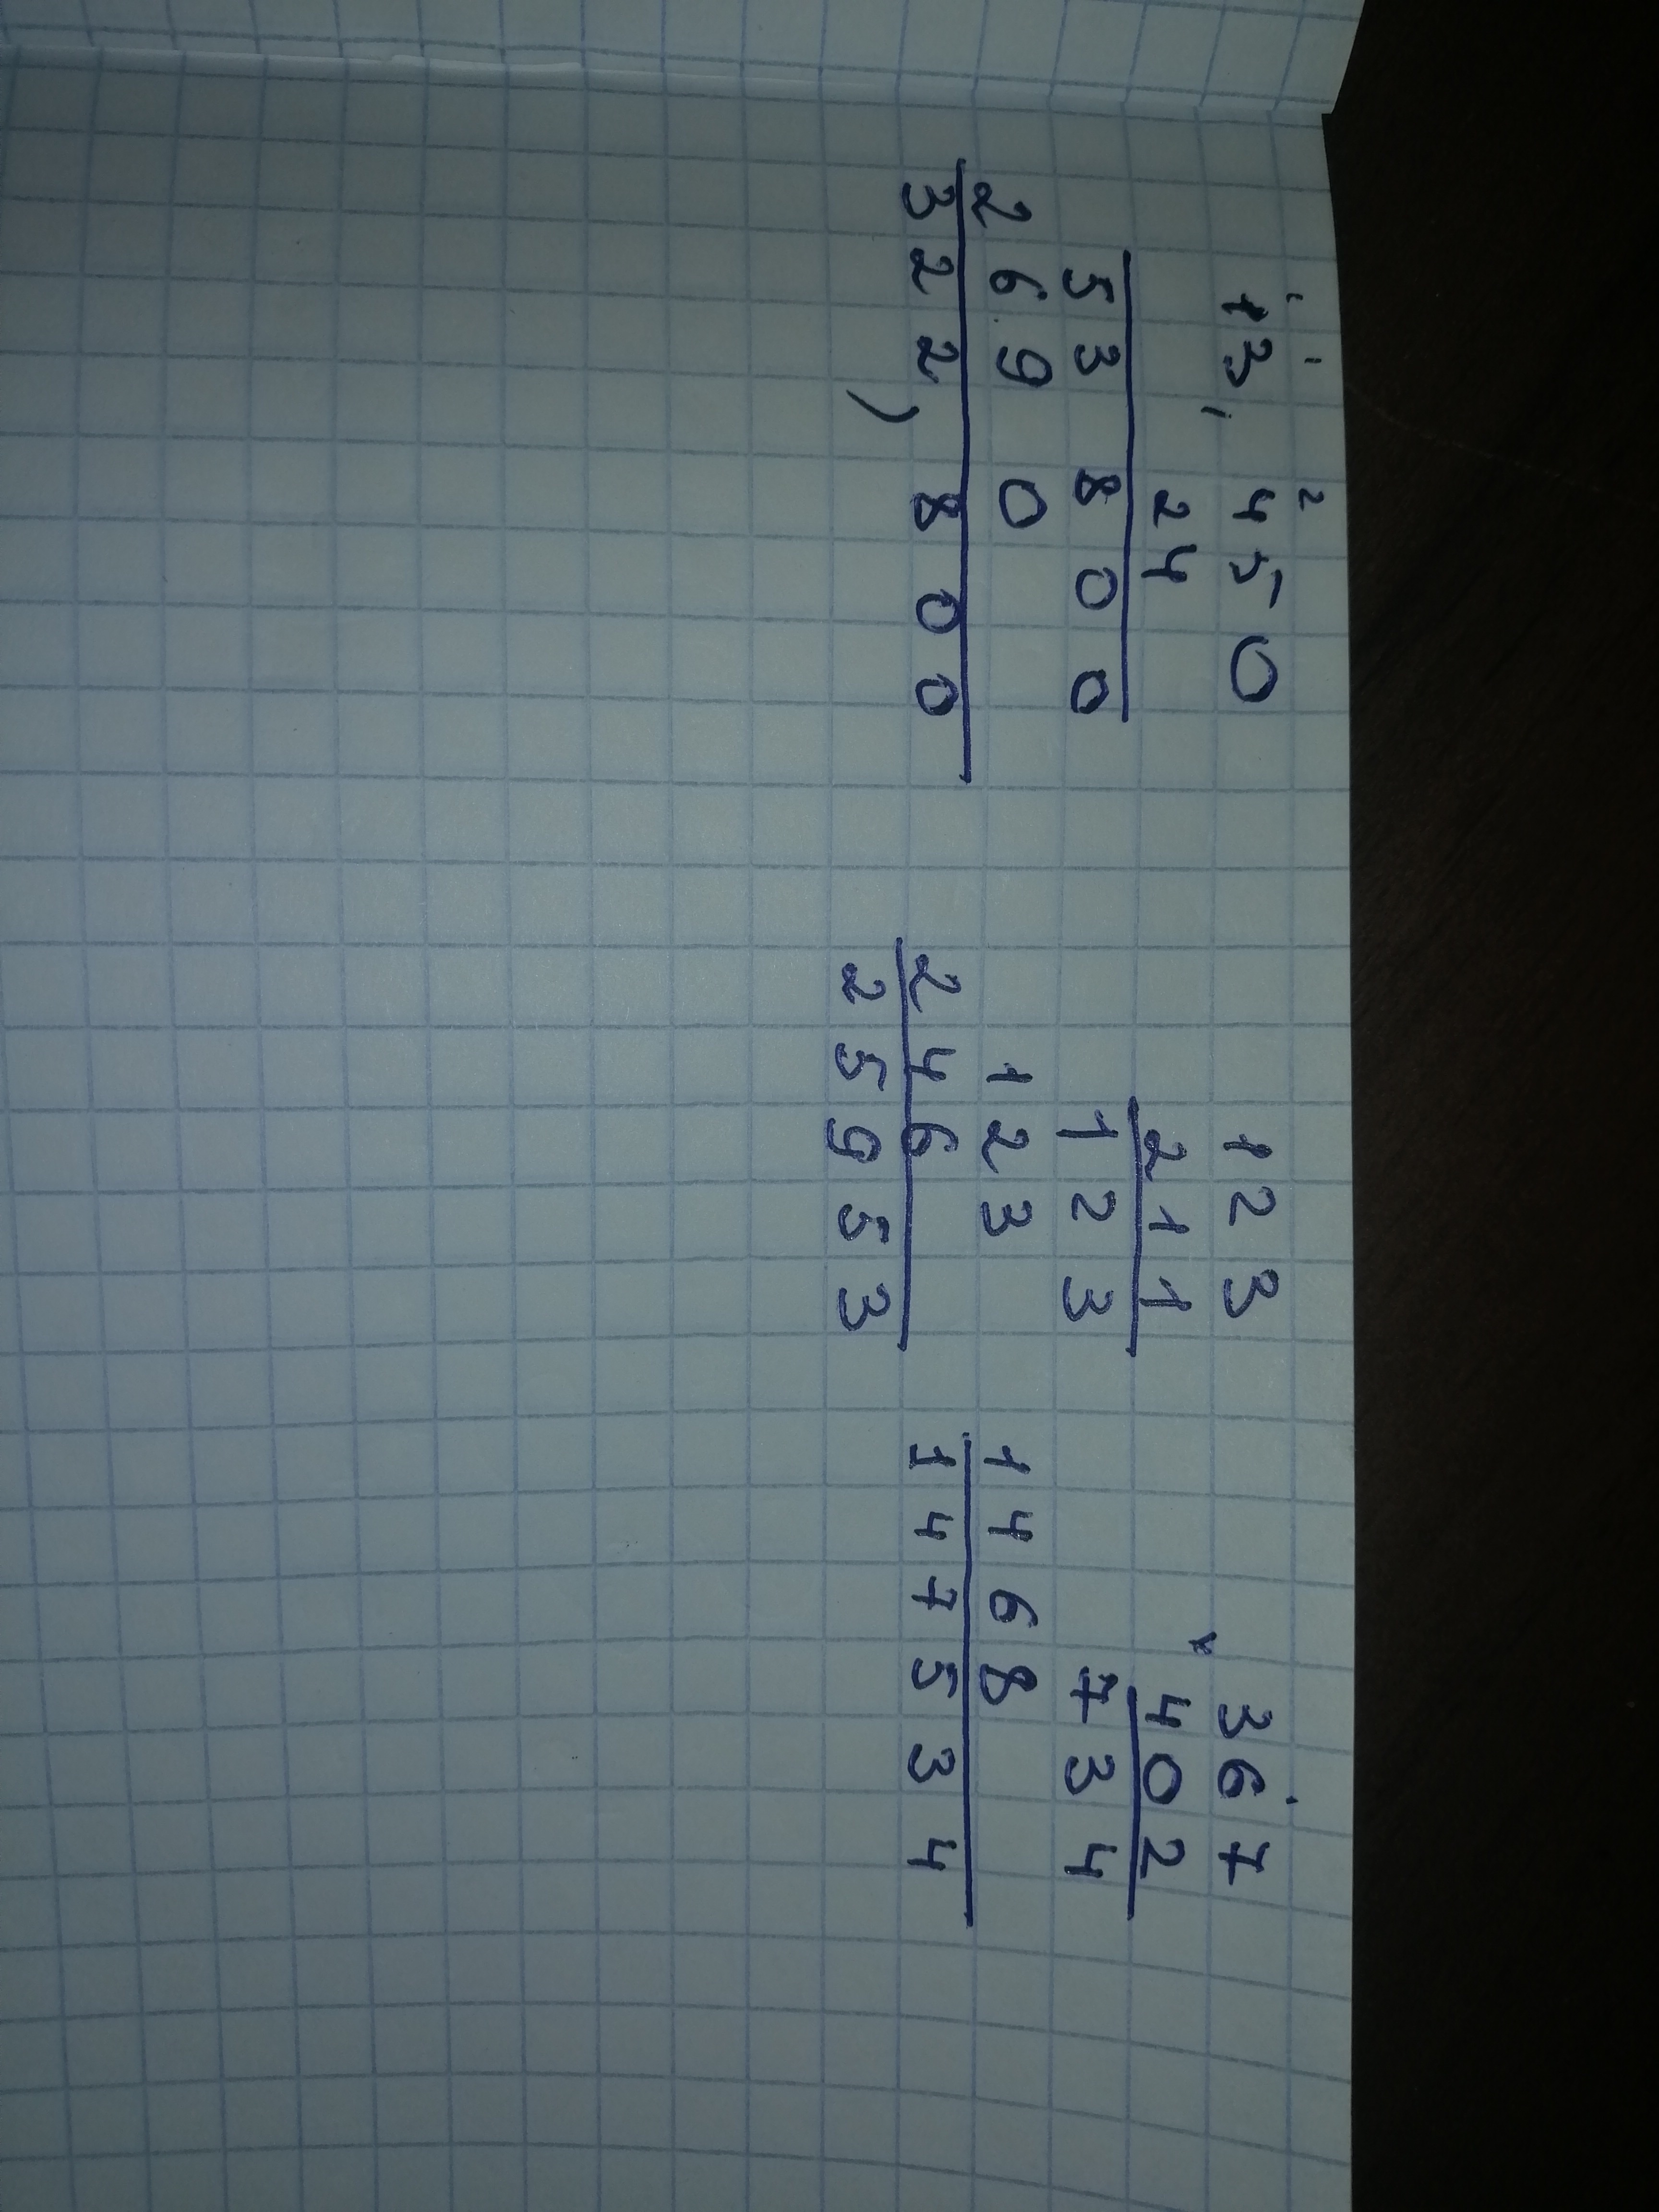 1 1 2
13,450
24
53800
2690
322,800
123
211
123
123
246
25953
367
402
734
1468
147534